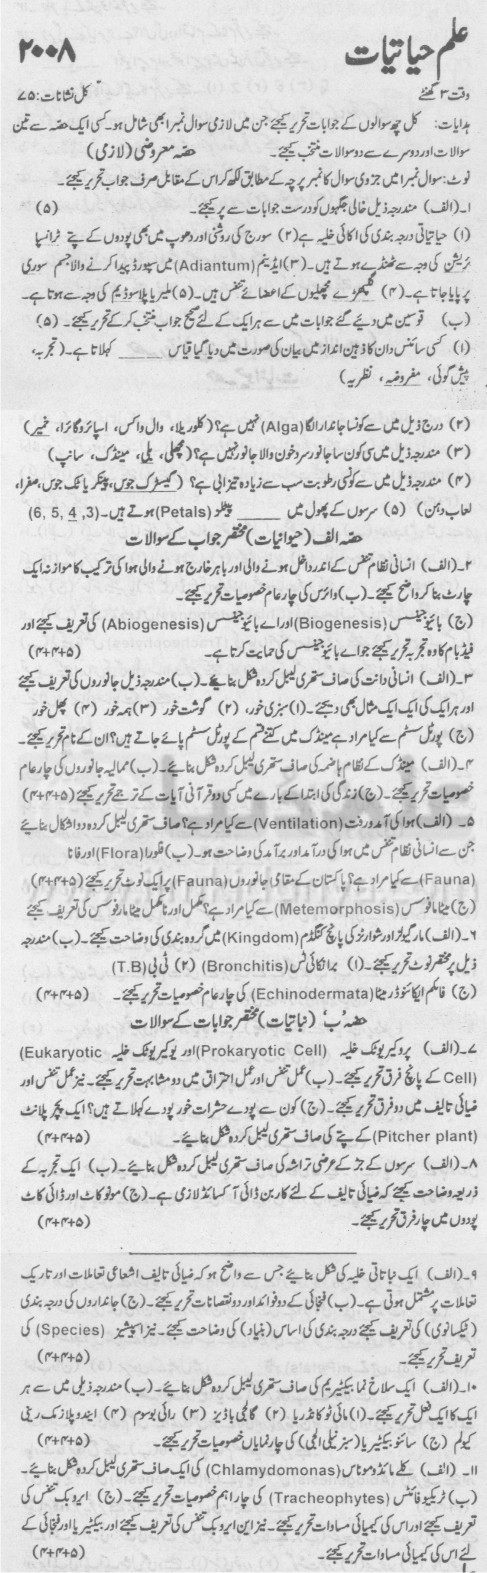 علم حیاتیات ۲۰۰۸
وقت ۳ گھنٹے کل نشانات: ۷۵
ہدایات: کل چھ سوالوں کے جوابات تحریر کیجئے جن میں لازمی سوال نمبر ۱ بھی شامل ہو۔ کسی ایک حصہ سے تین
سوالات اور دوسرے سے دو سوالات منتخب کیجئے۔ حصہ معروضی (لازمی)
نوٹ: سوال نمبر ۱ میں جزوی سوال کا نمبر پرچہ کے مطابق لکھ کر اس کے مقابل صرف جواب تحریر کیجئے۔
۱۔ (الف) مندرجہ ذیل خالی جگہوں کو درست جوابات سے پر کیجئے۔ (۵)
(۱) حیاتیاتی درجہ بندی کی اکائی خلیہ ہے (۲) سورج کی روشنی اور دھوپ میں بھی پودوں کے پتے ٹرانسپا
ئریشن کی وجہ سے ٹھنڈے ہوتے ہیں۔ (۳) ایڈینم (Adiantum) میں سپورز پیدا کرنے والا جسم سوری
پر پایا جاتا ہے۔ (۴) گلپھڑے مچھلیوں کے اعضائے تنفس ہیں۔ (۵) ملیریا پلاسموڈیم کی وجہ سے ہوتا ہے۔
(ب) قوسین میں دیئے گئے جوابات میں سے ہر ایک کے لئے صحیح جواب منتخب کر کے تحریر کیجئے۔ (۵)
(۱) کسی سائنس دان کا ذہین انداز میں بیان کی صورت میں دیا گیا قیاس ____ کہلاتا ہے۔ (تجربہ،
پیش گوئی، مفروضہ، نظریہ)
(۲) درج ذیل میں سے کونسا جاندار الگا (Alga) نہیں ہے؟ (کلوریلا، وال واکس، اسپائروگائرا، خمیر)
(۳) مندرجہ ذیل میں سی کون سا جانور سرد خون والا جانور نہیں ہے؟ (مچھلی، بلی، مینڈک، سانپ)
(۴) مندرجہ ذیل میں سے کونسی رطوبت سب سے زیادہ تیزابی ہے؟ (گیسٹرک جوس، پینکریاٹک جوس، صفرا،
لعاب دہن) (۵) سرسوں کے پھول میں ____ پیٹلز (Petals) ہوتے ہیں۔ (3, 4, 5, 6)
حصہ الف (حیوانیات) مختصر جواب کے سوالات
۲۔ (الف) انسانی نظام تنفس کے اندر داخل ہونے والی اور باہر خارج ہونے والی ہوا کی ترکیب کا موازنہ ایک
چارٹ بنا کر واضح کیجئے۔ (ب) وائرس کی چار عام خصوصیات تحریر کیجئے۔
(ج) بائیوجینسس (Biogenesis) اور اے بائیوجینسس (Abiogenesis) کی تعریف کیجئے اور
نیڈہام کا وہ تجربہ تحریر کیجئے جو اے بائیوجینسس کی حمایت کرتا ہے۔ (۴+۴+۵)
۳۔ (الف) انسانی دانت کی صاف ستھری لیبل کردہ شکل بنائیے۔ (ب) مندرجہ ذیل جانوروں کی تعریف کیجئے
اور ہر ایک کی ایک ایک مثال بھی دیجئے۔ (۱) سبزی خور، (۲) گوشت خور (۳) ہمہ خور (۴) پھل خور
(ج) پورٹل سسٹم سے کیا مراد ہے مینڈک میں کتنے قسم کے پورٹل سسٹم پائے جاتے ہیں؟ ان کے نام تحریر کیجئے۔
۴۔ (الف) مینڈک کے نظام ہاضمہ کی صاف ستھری لیبل کردہ شکل بنائیے۔ (ب) ممالیہ جانوروں کی چار عام
خصوصیات تحریر کیجئے۔ (ج) زندگی کی ابتدا کے بارے میں کسی دو قرآنی آیات کے ترجمے تحریر کیجئے (۴+۴+۵)
۵۔ (الف) ہوا کی آمد و رفت (Ventilation) سے کیا مراد ہے؟ صاف ستھری لیبل کردہ دو اشکال بنائیے
جن سے انسانی نظام تنفس میں ہوا کی درآمد اور برآمد کی وضاحت ہو۔ (ب) فلورا (Flora) اور فانا
(Fauna) سے کیا مراد ہے؟ پاکستان کے مقامی جانوروں (Fauna) پر ایک نوٹ تحریر کیجئے (۴+۴+۵)
(ج) میٹامورفوسس (Metemorphosis) سے کیا مراد ہے؟ مکمل اور نامکمل میٹامارفوسس کی تعریف کیجئے
۶۔ (الف) مارگیولز اور شوارٹز کی پانچ کنگڈم (Kingdom) میں گروہ بندی کی وضاحت کیجئے۔ (ب) مندرجہ
ذیل پر مختصر نوٹ تحریر کیجئے۔ (۱) برانکائی ٹس (Bronchitis) (۲) ٹی بی (T.B)
(ج) فائلم ایکائنوڈرمیٹا (Echinodermata) کی چار عام خصوصیات تحریر کیجئے۔ (۴+۴+۵)
حصہ 'ب' (نباتیات) مختصر جوابات کے سوالات
۷۔ (الف) پروکیریوٹک خلیہ (Prokaryotic Cell) اور یوکیریوٹک خلیہ (Eukaryotic
Cell) کے پانچ فرق تحریر کیجئے۔ (ب) عمل تنفس اور عمل احتراق میں دو مشابہت تحریر کیجئے۔ نیز عمل تنفس اور
ضیائی تالیف میں دو فرق تحریر کیجئے۔ (ج) کون سے پودے حشرات خور پودے کہلاتے ہیں؟ ایک پچر پلانٹ
(Pitcher plant) کے پتے کی صاف ستھری لیبل کردہ شکل بنائیے۔ (۴+۴+۵)
۸۔ (الف) سرسوں کے جڑ کے عرضی تراشہ کی صاف ستھری لیبل کردہ شکل بنائیے۔ (ب) ایک تجربہ کے
ذریعہ وضاحت کیجئے کہ ضیائی تالیف کے لئے کاربن ڈائی آکسائڈ لازمی ہے۔ (ج) مونوکاٹ اور ڈائی کاٹ
پودوں میں چار فرق تحریر کیجئے۔ (۴+۴+۵)
۹۔ (الف) ایک نباتاتی خلیہ کی شکل بنائیے جس سے واضح ہو کہ ضیائی تالیف اشعاعی تعاملات اور تاریک
تعاملات پر مشتمل ہوتی ہے۔ (ب) فنجائی کے دو فوائد اور دو نقصانات تحریر کیجئے۔ (ج) جانداروں کی درجہ بندی
(ٹیکسانومی) کی تعریف کیجئے درجہ بندی کی اساس (بنیاد) کی وضاحت کیجئے۔ نیز اسپیشیز (Species) کی
تعریف تحریر کیجئے۔ (۴+۴+۵)
۱۰۔ (الف) ایک سلاخ نما بیکٹیریم کی صاف ستھری لیبل کردہ شکل بنائیے۔ (ب) مندرجہ ذیلی میں سے ہر
ایک کا ایک فعل تحریر کیجئے۔ (۱) مائی ٹوکانڈریا (۲) گالجی باڈیز (۳) رائی بوسوم (۴) اینڈوپلازمک ریٹی
کیولم (ج) سائنو بیکٹیریا (سبز نیلی الجی) کی چار نمایاں خصوصیات تحریر کیجئے۔ (۴+۴+۵)
۱۱۔ (الف) کلے مائڈوموناس (Chlamydomonas) کی ایک صاف ستھری لیبل کردہ شکل بنائیے۔
(ب) ٹریکیوفائٹس (Tracheophytes) کی چار اہم خصوصیات تحریر کیجئے۔ (ج) ایروبک تنفس کی
تعریف کیجئے اور اس کی کیمیائی مساوات تحریر کیجئے۔ نیز این ایروبک تنفس کی تعریف کیجئے اور بیکٹیریا اور فنجائی کے
لئے اس کی کیمیائی مساوات تحریر کیجئے۔ (۴+۴+۵)